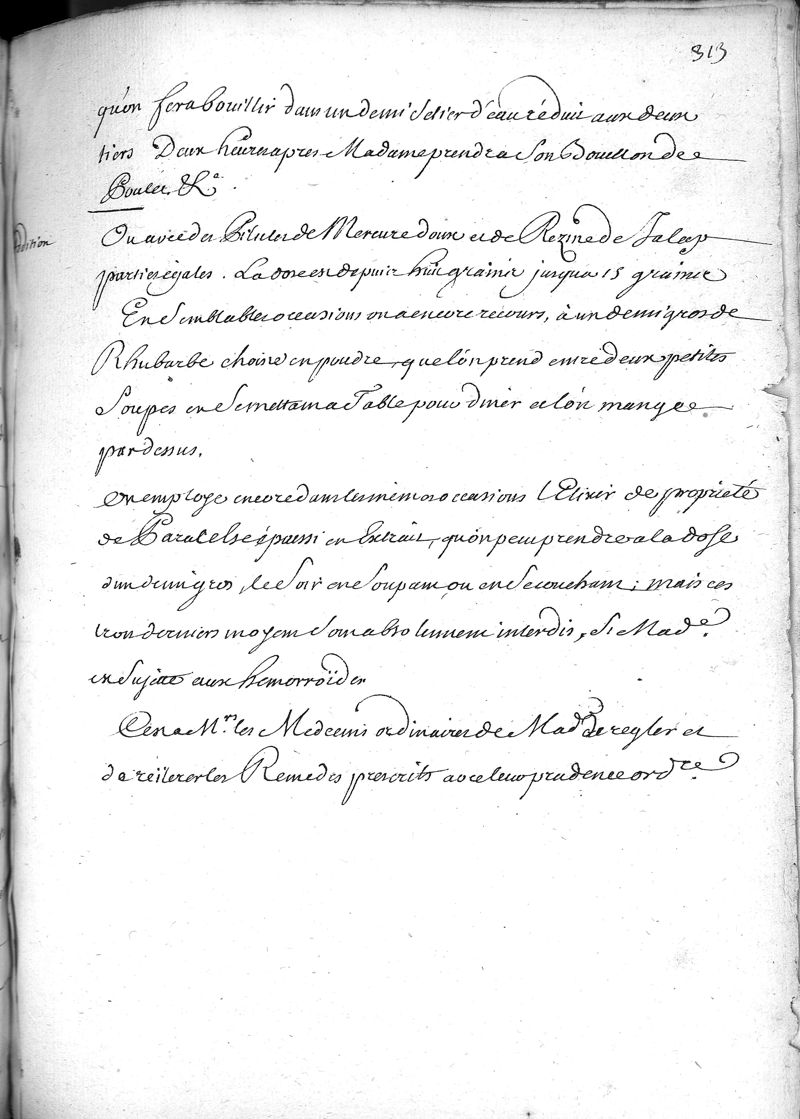 313
qu'on fera bouillir dans un demi Setier d'eau réduit aux deux
tiers Deux heures apres Madame prendra Son Bouillon de
Poulet &c.ª
Ou avec des Pilules de Mercure doux et de Rezine de Jalap
parties égales. La dose est depuis huit grains jusqua 15 grains
En Semblables occasions on a encore recours, à un demi gros de
Rhubarbe choisie en poudre, que l'on prend entre deux petites
Soupes en Se mettant a Table pour diner et l'on mange
par dessus.
On employe encore dans les mêmes occasions l'Elixir de proprieté
de Paracelse épaissi en Extrait, qu'on peut prendre a la dose
d'un demi gros, le Soir en Soupant ou en Se couchant; mais ces
trois derniers moyens Sont absolument interdis, Si Mad.e
est Sujette aux hemorroïdes
C'est a M.rs les Medecins ordinaires de Mad.e de regler et
de réïterer les Remedes prescrits avec leur prudence ord.re